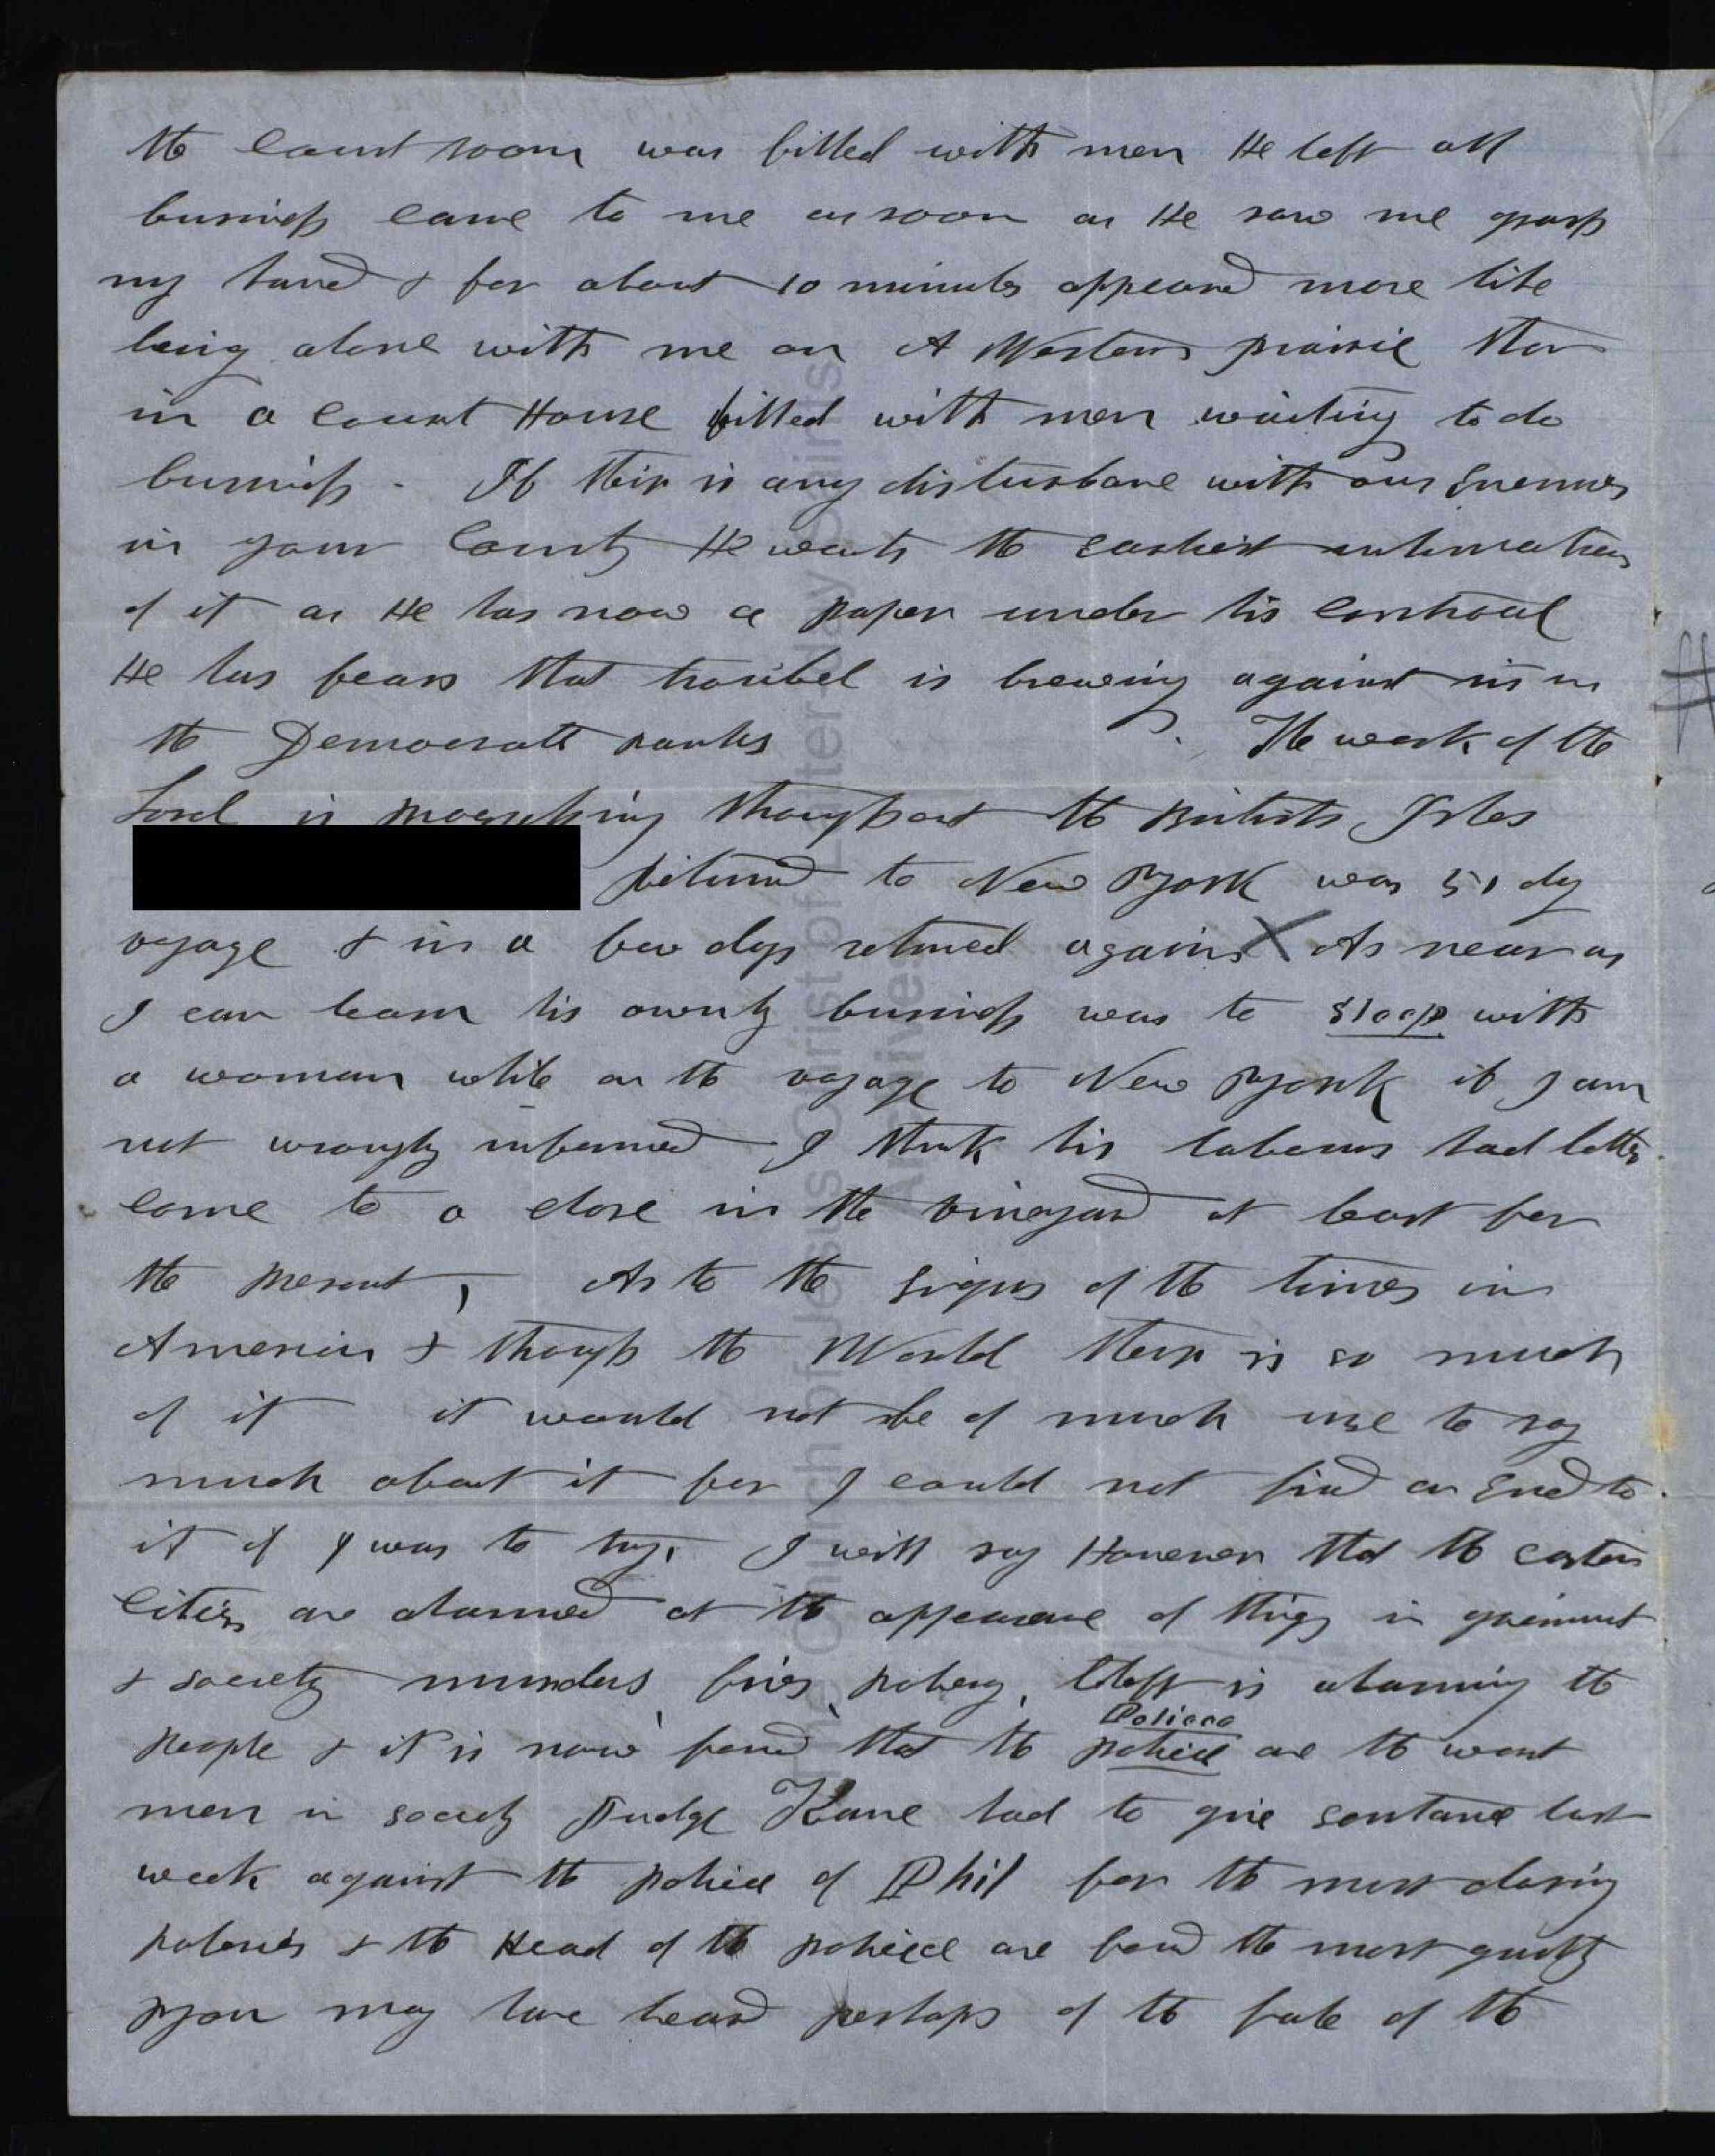 the Court room was filled with men He left all
business came to me as soon as He saw me grasp
my hand & for about 10 minutes appeard more like
being alone with me on A Western prairie than
in a Court House filled with men waiting to do
business. If their is any disturbane with our Enemies
in your County He wants the earliest intimation
of it as He has now a paper under his controul
He has fears that troubel is brewing against us in
the Democratt ranks The work of the
Lord is progressing through out the British Isles
returned to New York was 51 day
voyage & in a few days returned again X As near as
I can learn his ownly business was to sleep with
a woman while on the voyage to New York if I am
not wrongly informed I think his labours had better
come to a close in the vineyard at least for
the present, As to the signs of the times in
America & through the World their is so much
of it it would not be of much use to say
much about it for I could not find an End to
it if I was to try. I will say However that the eastern
Cities are alarmed at the appearane of things in
& society murders fires robery, theft is alarming the
people & it is now found that the police are the worst
Police
men in society Judge Kane had to give sentane last
week against the police of Phil for the most daring
roberies & the Head of the police are found the most guilty
you may have heard perhaps of the fate of the
The Church of Jesus Christ of Latter-day Saints
Archives